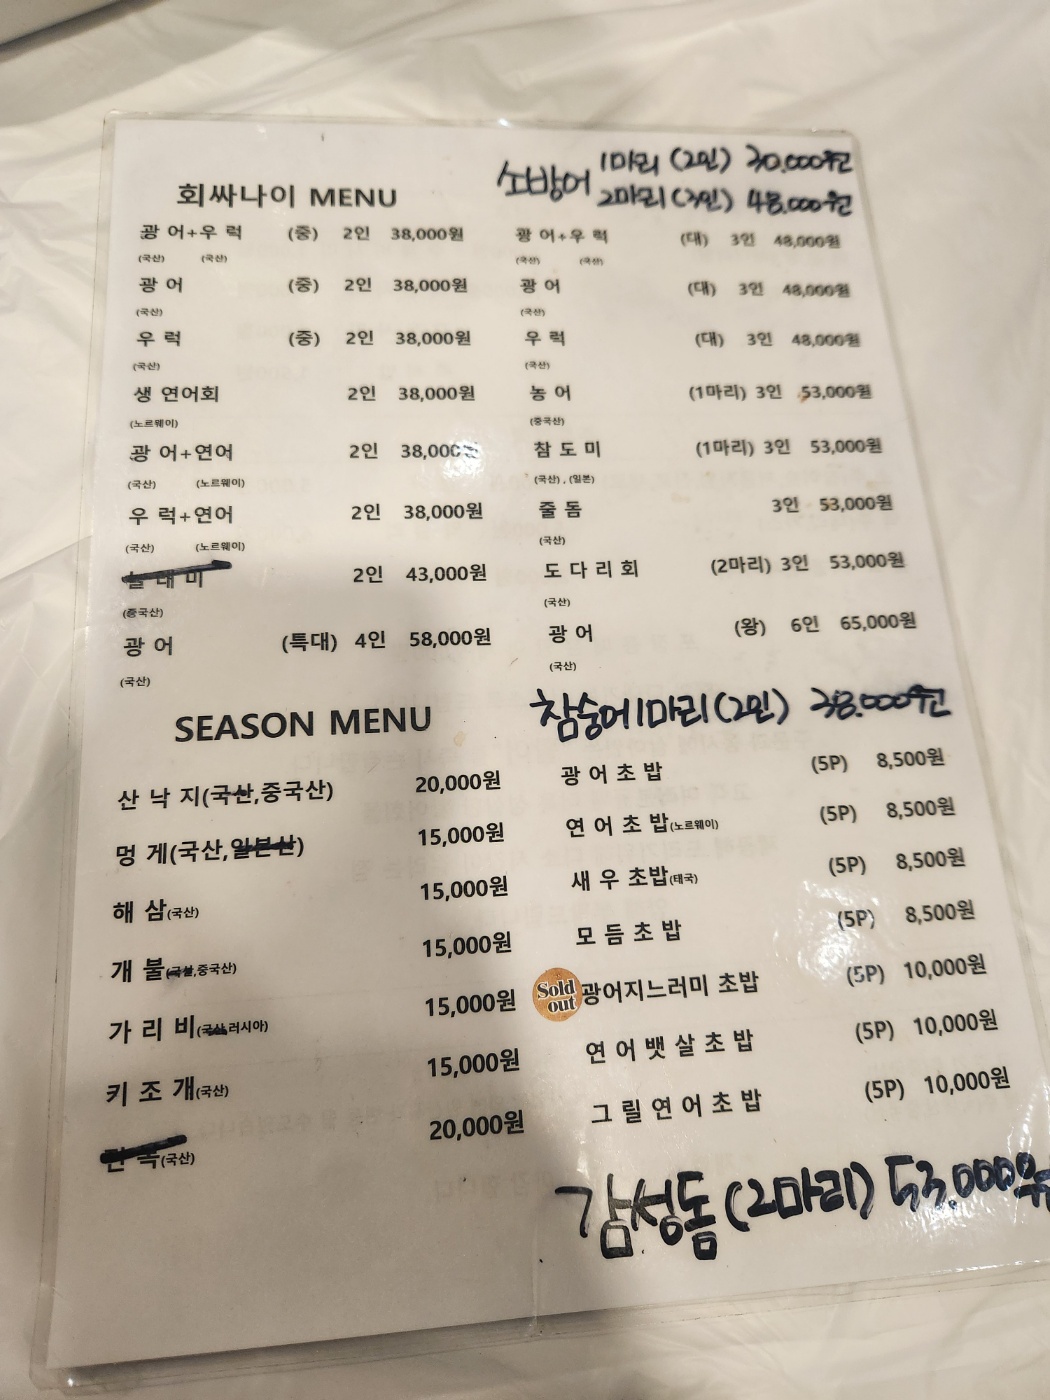 회싸나이 MENU
소방어 1마리 (2인) 30.000원
2마리 (3인) 48.000원
광 어+우 럭 (중) 2인 38,000원
(국산) (국산)
광 어 (중) 2인 38,000원
(국산)
우 럭 (중) 2인 38,000원
(국산)
생 연어회 2인 38,000원
(노르웨이)
광 어+연어 2인 38,000원
(국산) (노르웨이)
우 럭+연어 2인 38,000원
(국산) (노르웨이)
놀 래 미 2인 43,000원
(중국산)
광 어 (특대) 4인 58,000원
(국산)
광 어+우 럭 (대) 3인 48,000원
(국산) (국산)
광 어 (대) 3인 48,000원
(국산)
우 럭 (대) 3인 48,000원
(국산)
농 어 (1마리) 3인 53,000원
(중국산)
참 도 미 (1마리) 3인 53,000원
(국산) , (일본)
줄 돔 3인 53,000원
(국산)
도 다 리 회 (2마리) 3인 53,000원
(국산)
광 어 (왕) 6인 65,000원
(국산)
참숭어 1마리 (2인) 38.000원
SEASON MENU
산 낙 지(국산,중국산) 20,000원
멍 게(국산,일본산) 15,000원
해 삼(국산) 15,000원
개 불(국산,중국산) 15,000원
가 리 비(국산,러시아) 15,000원
키 조 개(국산) 15,000원
전 복(국산) 20,000원
광 어 초 밥 (5P) 8,500원
연 어 초 밥(노르웨이) (5P) 8,500원
새 우 초밥(태국) (5P) 8,500원
모 듬 초 밥 (5P) 8,500원
Sold
out
광어지느러미 초밥 (5P) 10,000원
연 어 뱃 살 초 밥 (5P) 10,000원
그 릴 연 어 초 밥 (5P) 10,000원
감성돔 (2마리) 53.000원